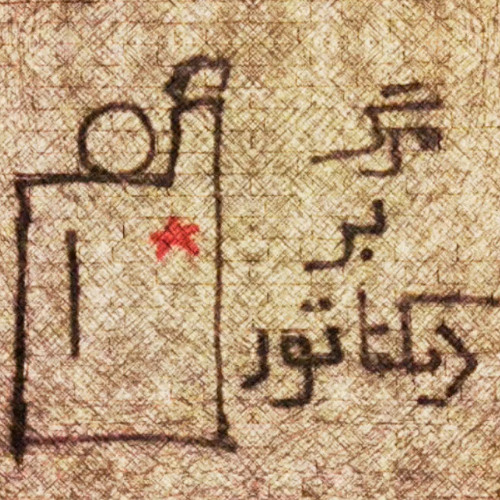 مرگ
بر
دیکتاتور